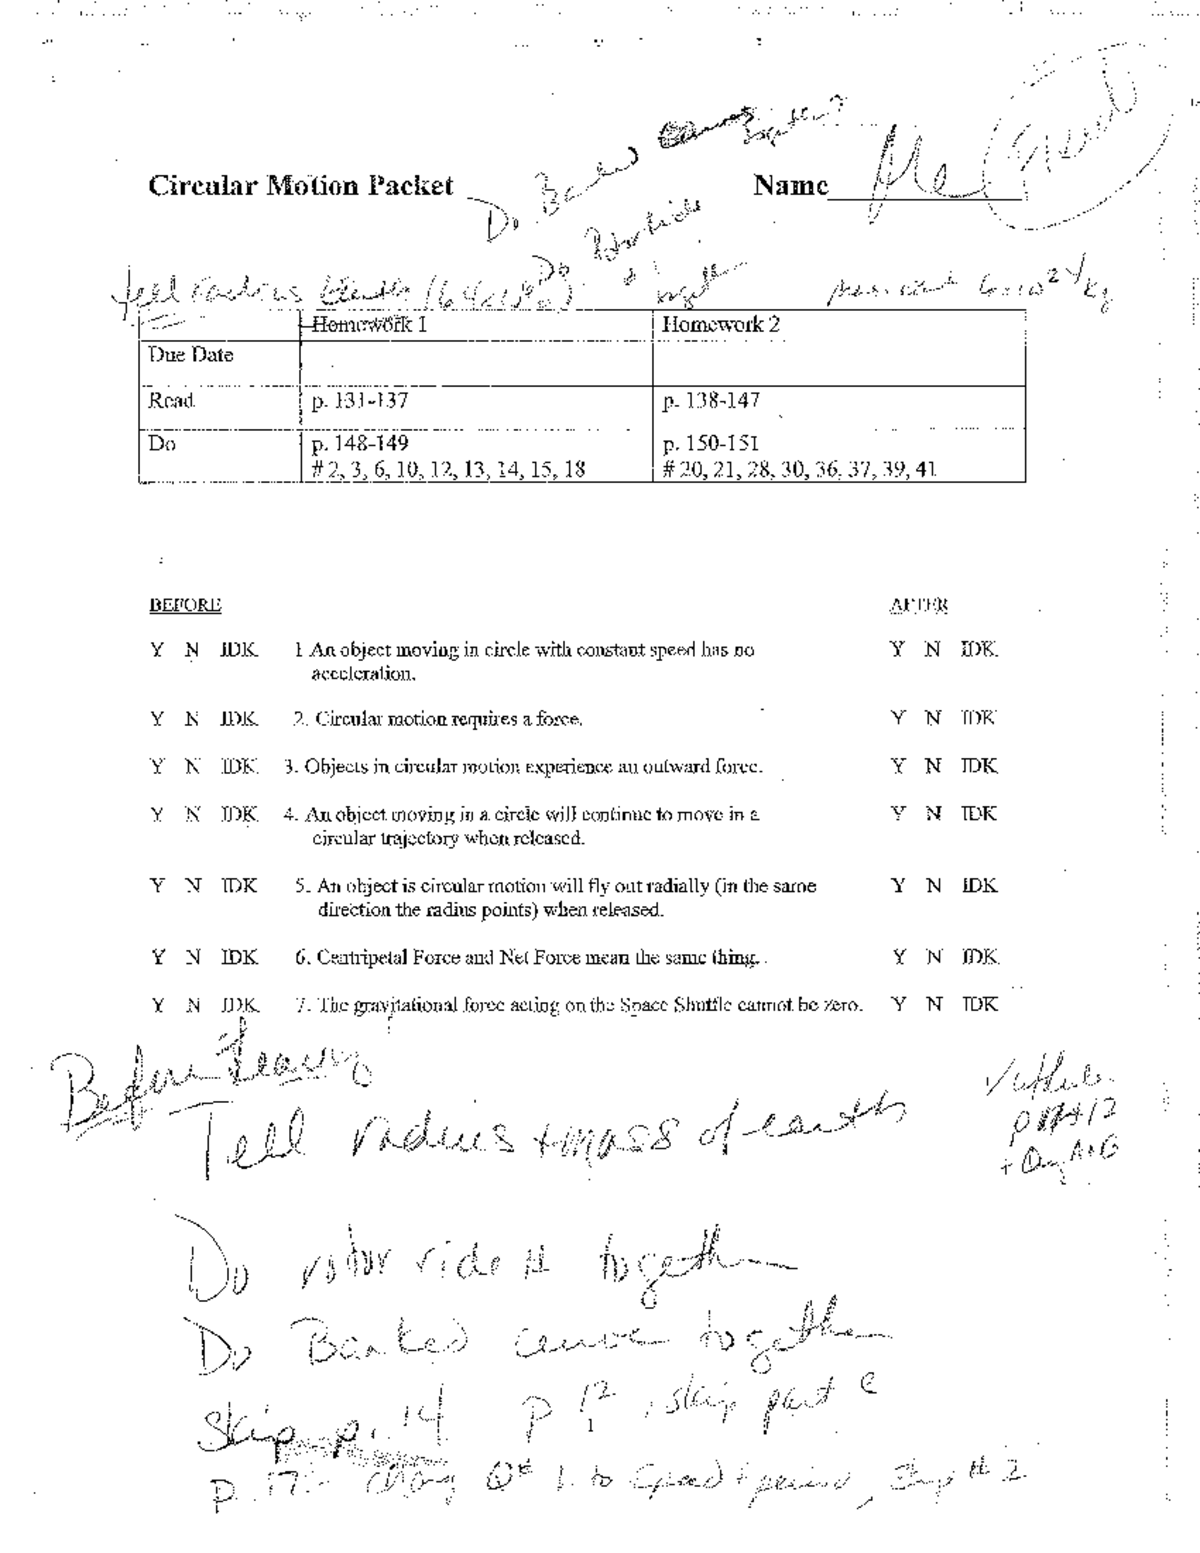 Do Banked together?
Circular Motion Packet
Name
Do Rotor ride
together
tell radius
Homework 1 Homework 2
Due Date
Read p. 131-137 p. 138-147
Do p. 148-149 p. 150-151
# 2, 3, 6, 10, 12, 13, 14, 15, 18 # 20, 21, 28, 30, 36, 37, 39, 41
BEFORE AFTER
Y N IDK 1 An object moving in circle with constant speed has no Y N IDK
acceleration.
Y N IDK 2. Circular motion requires a force. Y N IDK
Y N IDK 3. Objects in circular motion experience an outward force. Y N IDK
Y N IDK 4. An object moving in a circle will continue to move in a Y N IDK
circular trajectory when released.
Y N IDK 5. An object is circular motion will fly out radially (in the same Y N IDK
direction the radius points) when released.
Y N IDK 6. Centripetal Force and Net Force mean the same thing. Y N IDK
Y N IDK 7. The gravitational force acting on the Space Shuttle cannot be zero. Y N IDK
Before Leaving
Tell radius + mass of earth
Do rotor ride # together
Do Banked curve together
Skip p. 14 p 12, skip part c
1
p. 17 - Q# 1 to speed + period, # 2